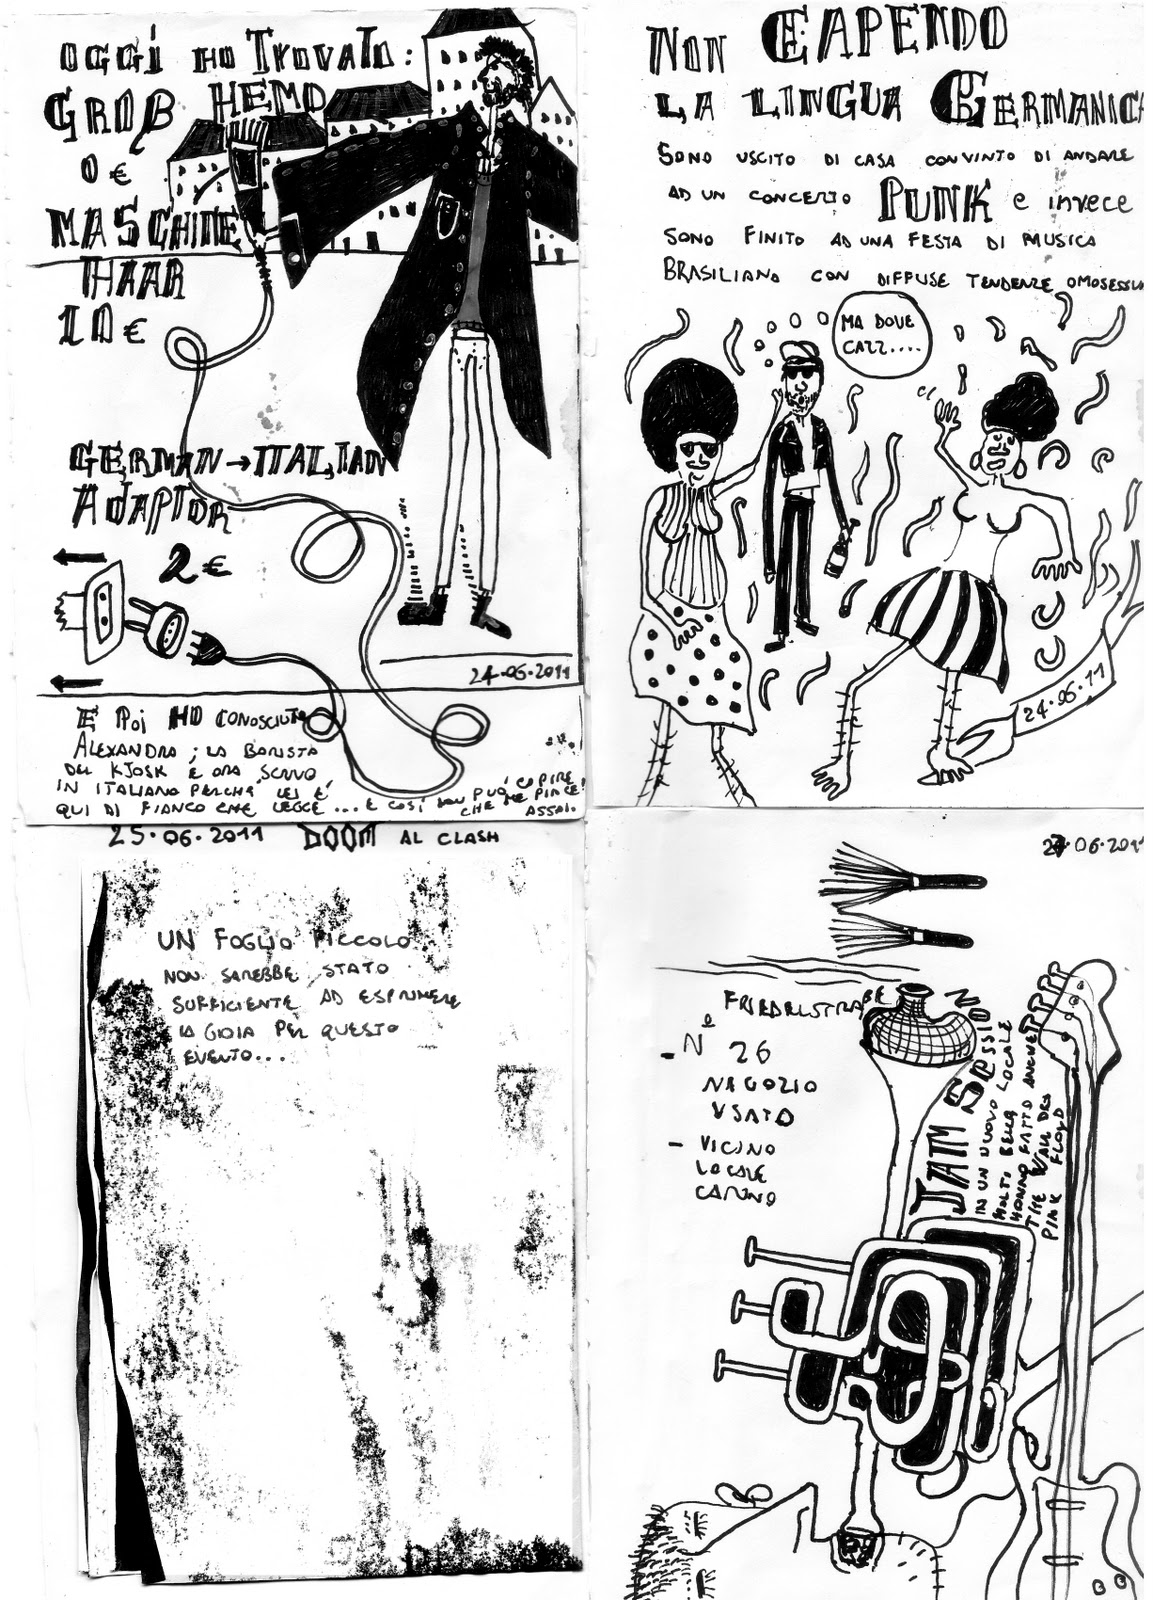 OGGI HO TROVATO:
GROß HEMD
0 €
MASCHINE
HAAR
10 €
GERMAN → ITALIAN
ADAPTOR
2 €
24.06.2011
E POI HO CONOSCIUTO
ALEXANDRA; LA BARISTA
DEL KJOSK E ORA SCRIVO
IN ITALIANO PERCHÉ LEI È
QUI DI FIANCO CHE LEGGE... E COSÌ NON PUÒ CAPIRE
CHE ME PIACE!
ASSAI.
NON CAPENDO
LA LINGUA GERMANICA
SONO USCITO DI CASA CONVINTO DI ANDARE
AD UN CONCERTO PUNK e invece
SONO FINITO AD UNA FESTA DI MUSICA
BRASILIANA CON DIFFUSE TENDENZE OMOSESSUA
MA DOVE
CAZZ....
24.06.11
25.06.2011 DOOM AL CLASH
UN FOGLIO PICCOLO
NON SAREBBE STATO
SUFFICIENTE AD ESPRIMERE
LA GIOIA PER QUESTO
EVENTO...
.06.2011
FRIEDELSTRAßE
- Nº 26
NEGOZIO
USATO
- VICINO
LOCALE
CARINO
JAM SESSION
IN UN NUOVO LOCALE
MOLTO BELLA
HANNO FATTO ANCHE
THE WALL DEI
PINK FLOYD